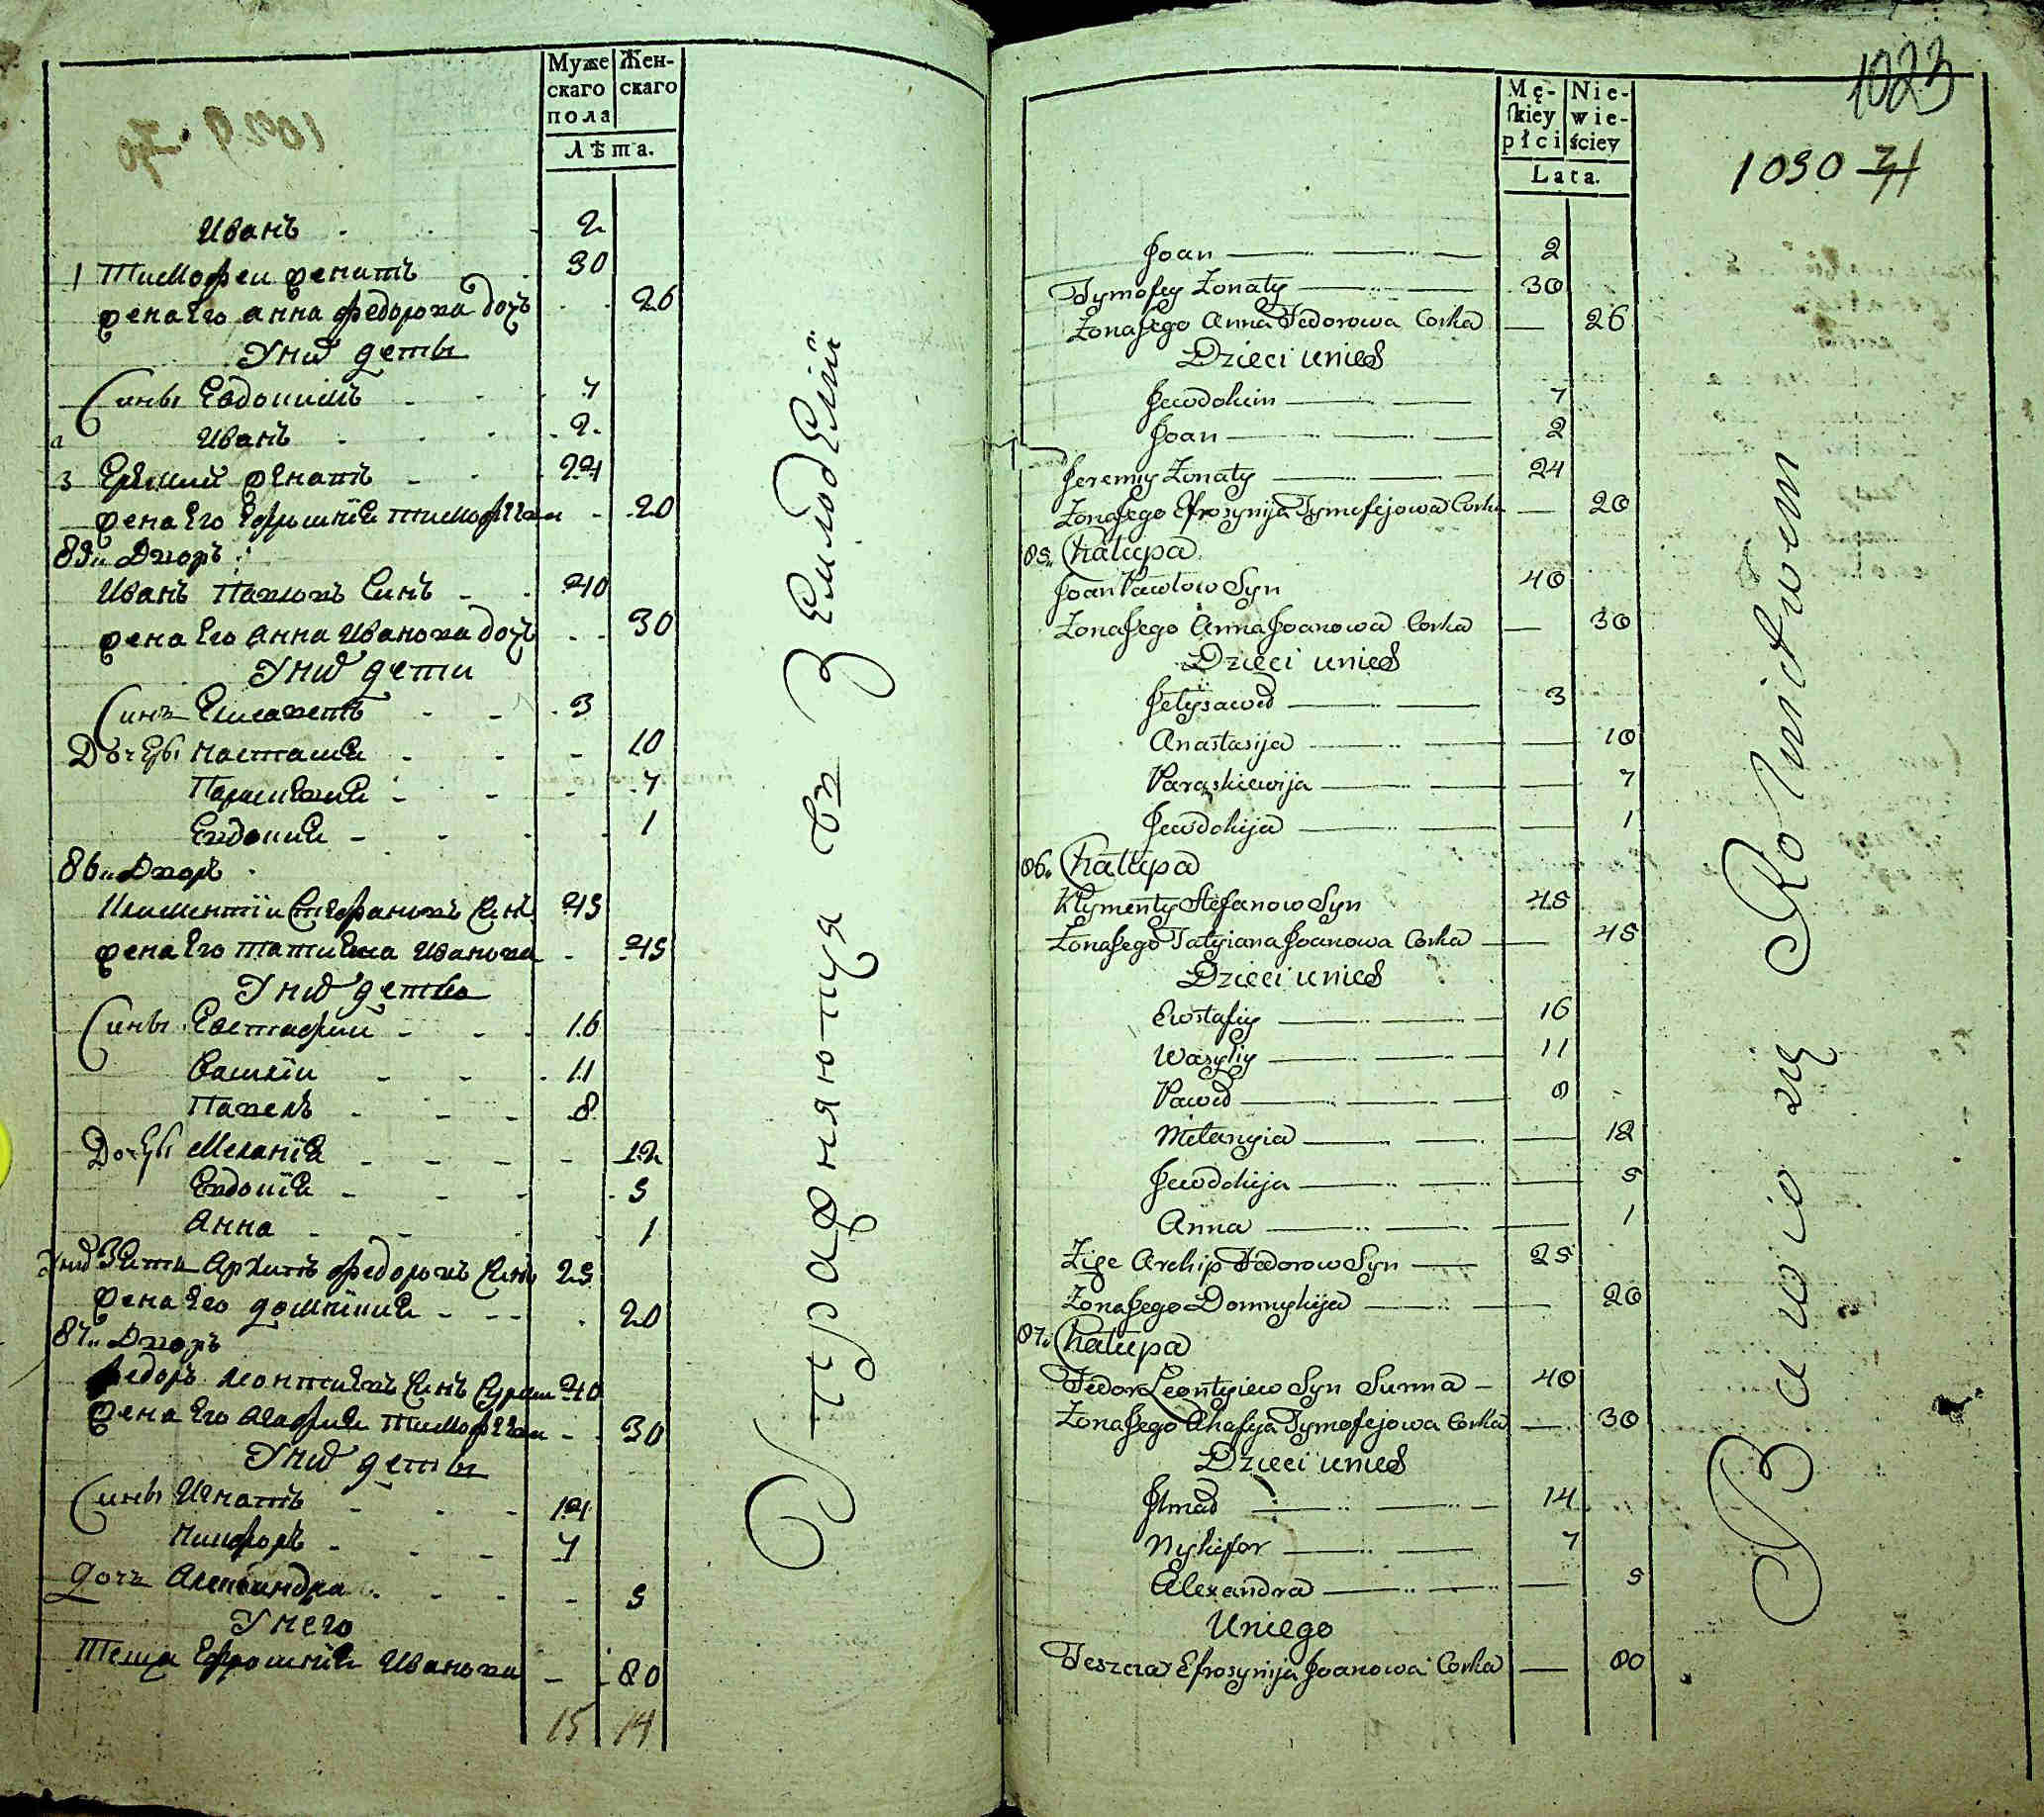 Муже
скаго
пола
Жен-
скаго
Лѣта.
Иванъ 2
1 Тимофеи женатъ 30
жена Его анна федорова дочъ 26
У них дети
Сины Евдокимъ 7
Иванъ 2
3 Еремий женатъ 24
жена Его Ефросиния тимофеева 20
85. Дворъ
Иванъ Павловъ Синъ 40
жена Его Анна Иванова дочъ 30
У них дети
Синъ Елисаветъ 3
Дочеры Настасия 10
Параскевия 7
Евдокия 1
86. Дворъ
Климентий Стефановъ Синъ 45
жена Его татияна Иванова 45
У них дети
Сины Евстафий 16
Василий 11
Павелъ 8
Дочеры Мелания 12
Евдокия 5
Анна 1
У них Зять Архипъ федоровъ Синъ 25
жена Его домникия 20
87. Дворъ
федоръ леонтиевъ Синъ 40
жена Его Агафия тимофеева 30
У них дети
Сины Игнатъ 14
Никифоръ 7
дочъ Александра 5
У него
Теща Ефросиния Иванова 80
15 14
Упражняются въ Земледелии
1023
1030 31
Mę-
ſkiey
płci
Nie-
wie-
ściey
Lata.
Joan 2
Tymofiy Żonaty 30
Żona Jego Anna Fedorowa Corka 26
Dzieci unich
Jewdokim 7
Joan 2
Jeremiy Żonaty 24
Żona Jego Efrosynija Tymofejowa Corka 20
85. Chałupa
Joan Pawłow Syn 40
Żona Jego Anna Joanowa Corka 30
Dzieci unich
Jełysawed 3
Anastasija 10
Paraskiewija 7
Jewdokija 1
86. Chałupa
Kłymentiy Stefanow Syn 45
Żona Jego Tatyiana Joanowa Corka 45
Dzieci unich
Ewstafiy 16
Wasyliy 11
Paweł 8
Mełanyia 12
Jewdokija 5
Anna 1
Zięc Archip Fedorow Syn 25
Żona Jego Domnykija 20
87. Chałupa
Fedor Leontyiew Syn Surma 40
Żona Jego Ahafija Tymofejowa Corka 30
Dzieci unich
Ihnad 14
Nykifor 7
Alexandra 5
Uniego
Teszcza Efrosynija Joanowa Corka 80
Bawio się Rolnictwem